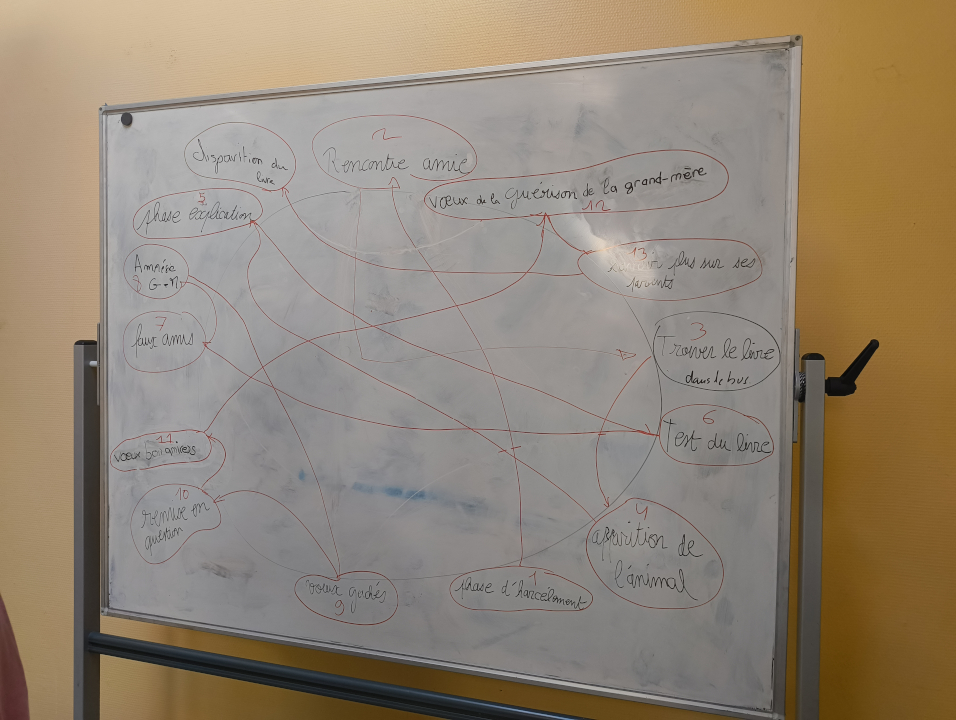 2
Rencontre amie
disparition du
livre
voeux de la guérison de la grand-mère
12
5
phase explication
13
plus sur ses
parents
Amnésie
8 G-M
7
faux amis
3
Trouver le livre
dans le bus
6
Test du livre
11.
voeux
10
remise en
question
4
apparition de
l'animal
1
phase d'harcèlement
voeux gachés
9